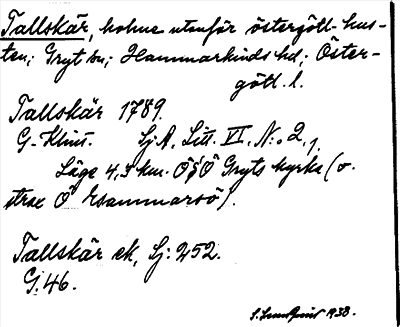 Tallskär, holme utanför östergötl. kus-
ten; Gryt sn; Hammarkinds hd; Öster-
götl. l.
Tallskär 1789.
G. Klint. Sj.A. Litt. VI. N:o 2.
Läge 4,5 km. ÖSÖ Gryts kyrka (o.
strax Ö
Tallskär ek, Sj: 252.
G:46.
1938.